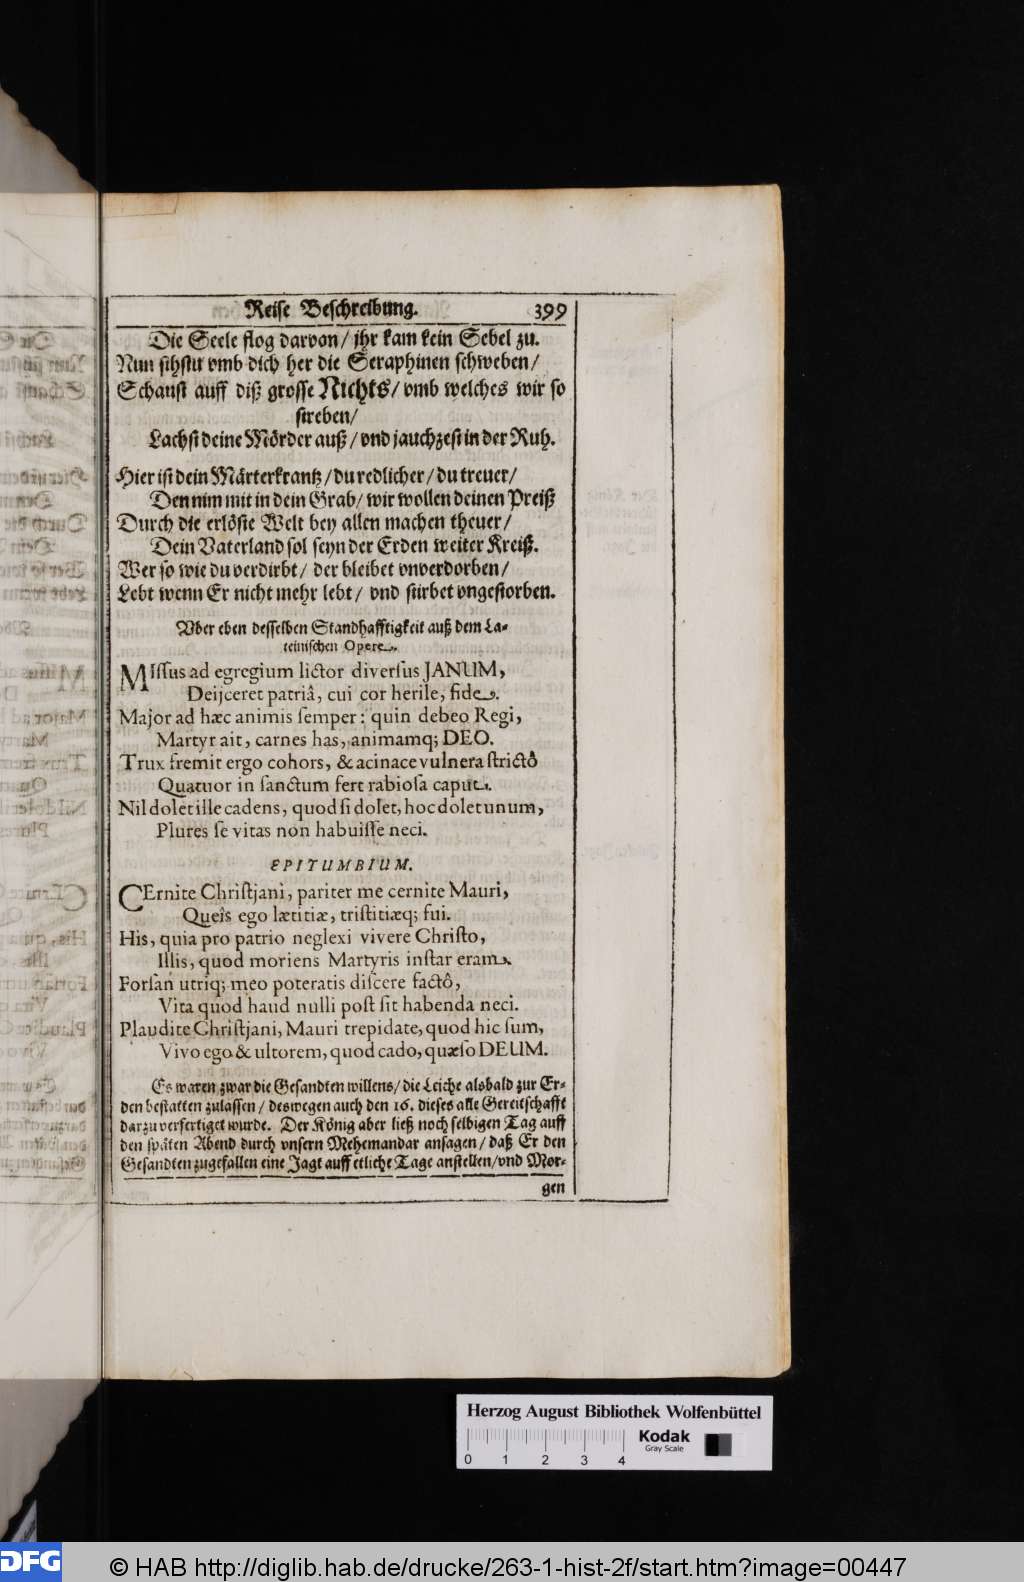 Reise Beschreibung. 399
Die Seele flog darvon / jhr kam kein Sebel zu.
Nun sihstu vmb dich her die Seraphinen schweben /
Schaust auff diß grosse Nichts / vmb welches wir so
streben /
Lachst deine Mörder auß / vnd jauchzest in der Ruh.
Hier ist dein Märterkrantz / du redlicher / du treuer /
Den nim mit in dein Grab / wir wollen deinen Preiß
Durch die erlöste Welt bey allen machen theuer /
Dein Vaterland sol seyn der Erden weiter Kreiß.
Wer so wie du verdirbt / der bleibet vnverdorben /
Lebt wenn Er nicht mehr lebt / vnd stirbet vngestorben.
Vber eben desselben Standhafftigkeit auß dem La-
teinischen Opere.
MIſſus ad egregium lictor diverſus JANUM,
Deijceret patriâ, cui cor herile, fide.
Major ad hæc animis ſemper: quin debeo Regi,
Martyr ait, carnes has, animamq; DEO.
Trux fremit ergo cohors, & acinace vulnera ſtrictô
Quatuor in ſanctum fert rabioſa caput.
Nil dolet ille cadens, quod ſi dolet, hoc dolet unum,
Plures ſe vitas non habuiſſe neci.
EPITUMBIUM.
CErnite Chriſtjani, pariter me cernite Mauri,
Queîs ego lætitiæ, triſtitiæq; fui.
His, quia pro patrio neglexi vivere Chriſto,
Illis, quod moriens Martyris inſtar eram.
Forſan utriq; meo poteratis diſcere factô,
Vita quod haud nulli poſt ſit habenda neci.
Plaudite Chriſtjani, Mauri trepidate, quod hic ſum,
Vivo ego & ultorem, quod cado, quæſo DEUM.
Es waren zwar die Gesandten willens / die Leiche alsbald zur Er-
den bestatten zulassen / deswegen auch den 16. dieses alle Gereitschafft
darzu verfertiget wurde. Der König aber ließ noch selbigen Tag auff
den späten Abend durch vnsern Mehemandar ansagen / daß Er den
Gesandten zugefallen eine Jagt auff etliche Tage anstellen / vnd Mor-
gen
Herzog August Bibliothek Wolfenbüttel
Kodak
Gray Scale
0 1 2 3 4
DFG
© HAB http://diglib.hab.de/drucke/263-1-hist-2f/start.htm?image=00447